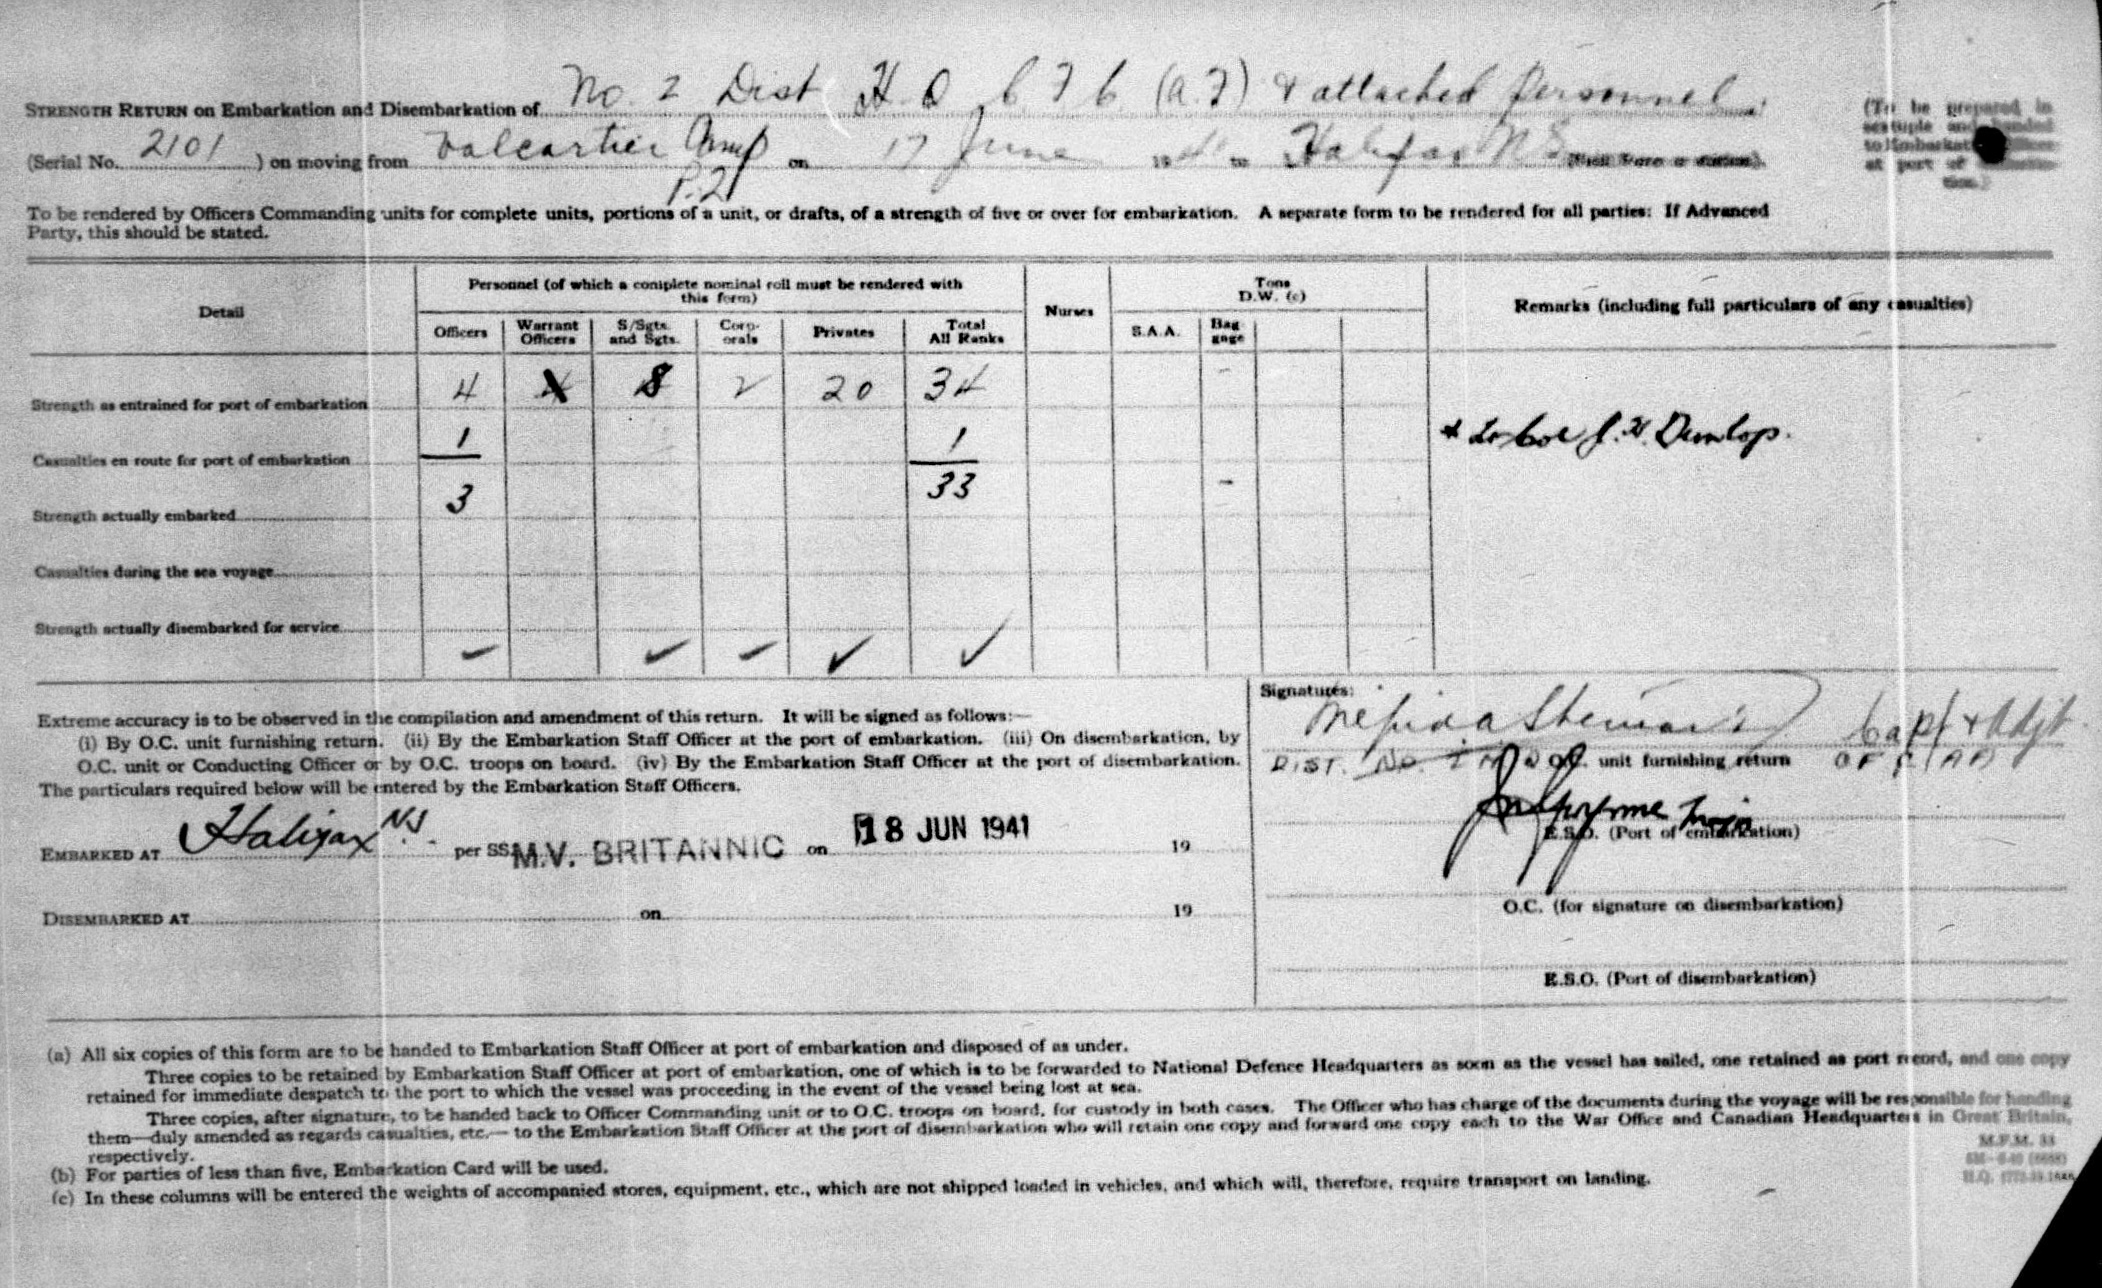 STRENGTH RETURN on Embarkation and Disembarkation of No. 2 Dist H Q C F C (A.F) & attached Personnel
(Serial No. 2101 ) on moving from Valcartier Camp on 17 June 1941 to Halifax N S
P.Q
(To be prepared in
sextuple and handed
to Embarkation Officer
at port of Embarka-
tion.)
To be rendered by Officers Commanding units for complete units, portions of a unit, or drafts, of a strength of five or over for embarkation. A separate form to be rendered for all parties: If Advanced
Party, this should be stated.
Detail
Personnel (of which a complete nominal roll must be rendered with
this form)
Nurses
Tons
D.W. (c)
Remarks (including full particulars of any casualties)
Officers Warrant Officers S/Sgts. and Sgts. Corp- orals Privates Total All Ranks S.A.A. Bag gage
Strength as entrained for port of embarkation 4 8 2 20 34 -
Casualties en route for port of embarkation 1 1 * Lt Col J. H. Dunlop.
Strength actually embarked 3 33 -
Casualties during the sea voyage
Strength actually disembarked for service
Extreme accuracy is to be observed in the compilation and amendment of this return. It will be signed as follows:—
(i) By O.C. unit furnishing return. (ii) By the Embarkation Staff Officer at the port of embarkation. (iii) On disembarkation, by
O.C. unit or Conducting Officer or by O.C. troops on board. (iv) By the Embarkation Staff Officer at the port of disembarkation.
The particulars required below will be entered by the Embarkation Staff Officers.
EMBARKED AT Halifax N.S. per SS M.V. BRITANNIC on 18 JUN 1941 19
DISEMBARKED AT on 19
Signatures:
Capt & Adjt.
DIST. No. 2 H Q O.C. unit furnishing return C F C (A F)
E.S.O. (Port of embarkation)
O.C. (for signature on disembarkation)
E.S.O. (Port of disembarkation)
(a) All six copies of this form are to be handed to Embarkation Staff Officer at port of embarkation and disposed of as under.
Three copies to be retained by Embarkation Staff Officer at port of embarkation, one of which is to be forwarded to National Defence Headquarters as soon as the vessel has sailed, one retained as port record, and one copy
retained for immediate despatch to the port to which the vessel was proceeding in the event of the vessel being lost at sea.
Three copies, after signature, to be handed back to Officer Commanding unit or to O.C. troops on board, for custody in both cases. The Officer who has charge of the documents during the voyage will be responsible for handing
them—duly amended as regards casualties, etc.— to the Embarkation Staff Officer at the port of disembarkation who will retain one copy and forward one copy each to the War Office and Canadian Headquarters in Great Britain,
respectively.
(b) For parties of less than five, Embarkation Card will be used.
(c) In these columns will be entered the weights of accompanied stores, equipment, etc., which are not shipped loaded in vehicles, and which will, therefore, require transport on landing.
M.F.M. 33